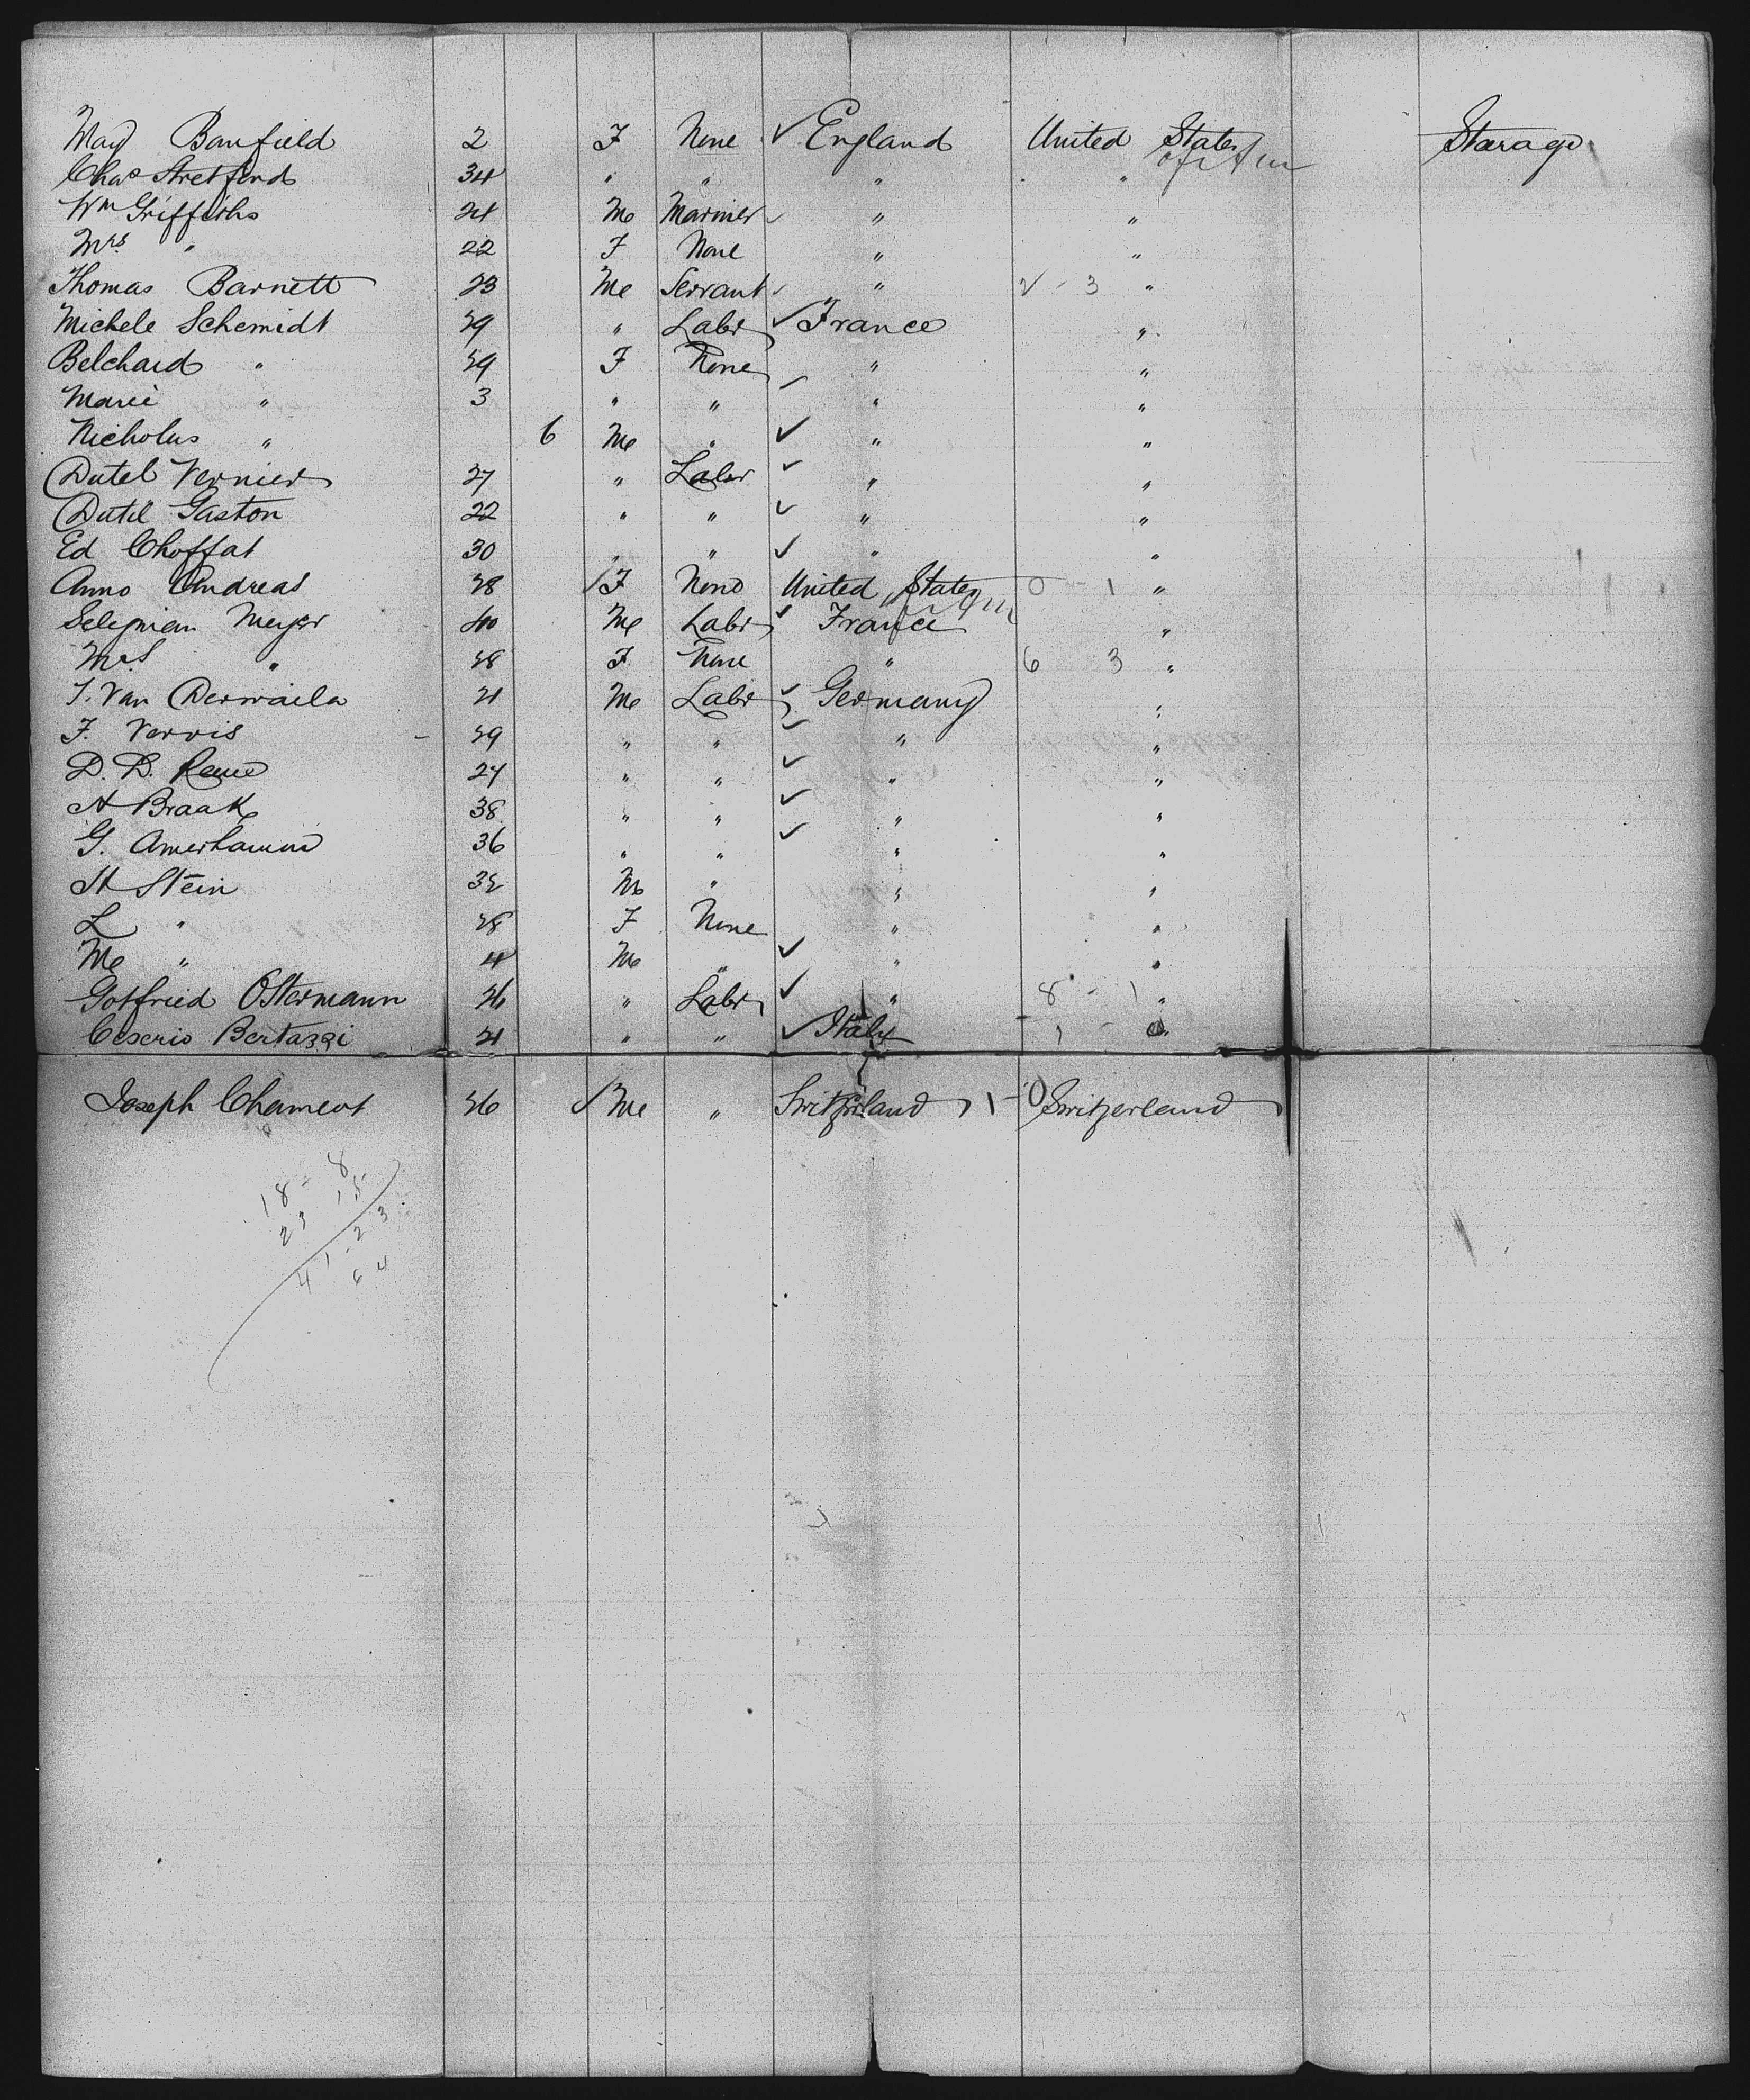 May Banfield 2 F None ✓ England United States Stearage
of Am
Chas Stretford 34 " " " "
Wm Griffiths 24 M Mariner ✓ " "
Mrs " 22 F None " "
Thomas Barnett 23 M Servant ✓ " 2 - 3 "
Michele Schemidt 29 " Labr ✓ France "
Belchard " 29 F None " "
Marie " 3 " " ✓ " "
Nicholus " 6 M " ✓ " "
Dutel Vernier 27 " Labr ✓ " "
Dutel Gaston 22 " " ✓ " "
Ed Choffat 30 " " ✓ " "
Anno Andreas 28 ✓ F None United States 0 - 1 "
of Am
Seligman Meyer 40 M Labr ✓ France "
Mrs " 28 F None " 6 3 "
J. Van Derwaila 21 M Labr ✓ Germany "
F. Vervis 29 " " ✓ " "
D. D. 24 " " ✓ " "
A Braak 38 " " ✓ " "
G. Amerhaumd 36 " " ✓ " "
St Stein 32 M " " "
L " 28 F None " "
M " 4 M " ✓ " "
Gotfried Ostermann 26 " Labr ✓ " 8 - 1 "
Ceserio Bertazzi 21 " " ✓ Italy - 1 - 0 "
Joseph Chameot 26 ✓ M " Switzerland 1 - 0 Switzerland
18 - 8
23 15
41 - 23
64